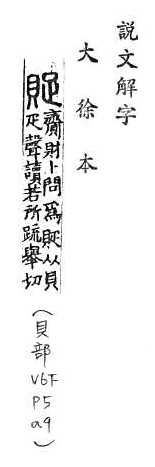 說文解字
大徐本
貶
齎財卜問爲貶从貝
疋聲讀若所疏舉切
（貝部
V6下
P5
a9）